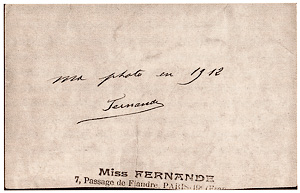 Ma photo en 1912
Fernande
Miss FERNANDE
7, Passage de Flandre, PARIS-19e